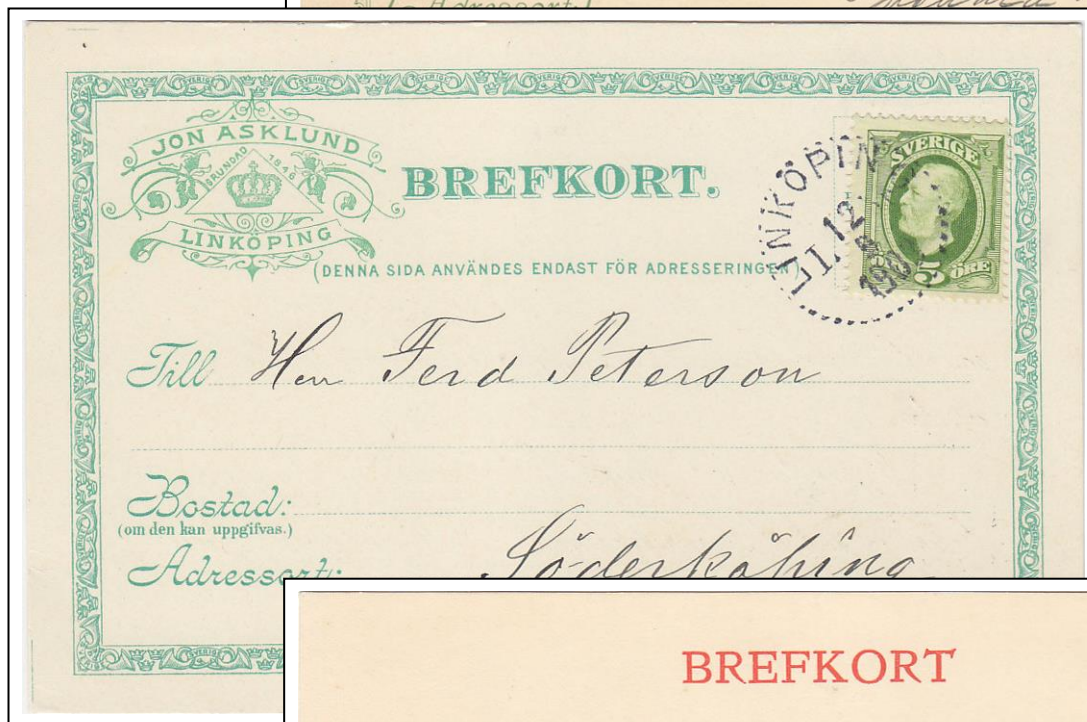 Adressort.
JON ASKLUND
GRUNDAD 1846
LINKÖPING
BREFKORT.
(DENNA SIDA ANVÄNDES ENDAST FÖR ADRESSERINGEN)
LINKÖPIN
SVERIGE
5 ÖRE
Till Herr Ferd Peterson
Bostad:
(om den kan uppgifvas.)
Adressort: Söderköping
BREFKORT